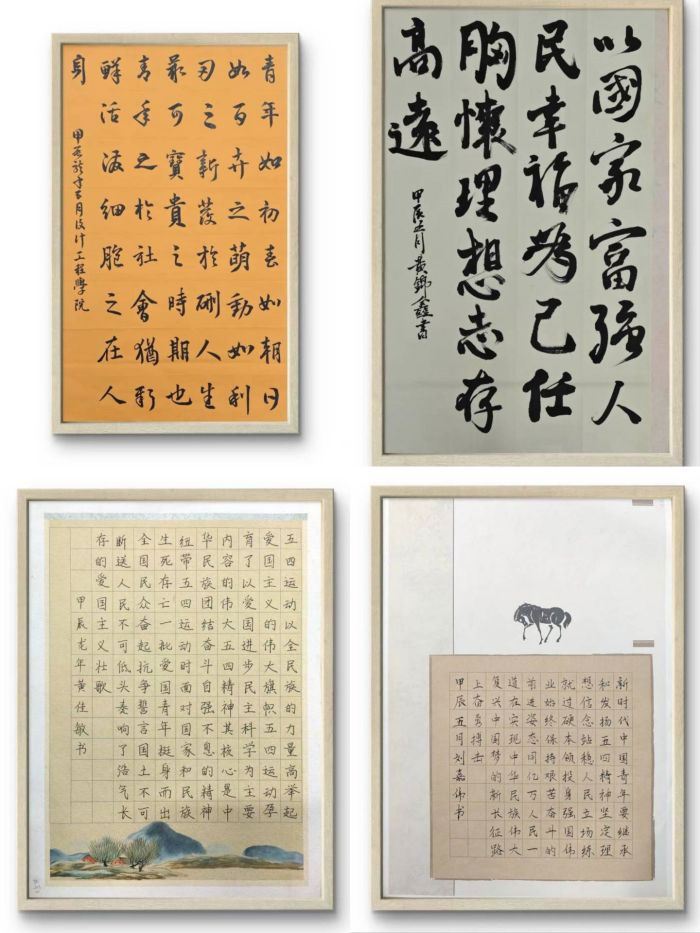 青年如初春如朝日
如百卉之萌動如利
刃之新發於硎人生
最可寶貴之時期也
青年之於社會猶新
鮮活潑細胞之在人
身
甲辰龍年五月设计工程學院
以國家富强人
民幸福為己任
胸懷理想志存
高遠
甲辰五月黄錦鑫書
五四运动以全民族的力量高举起
爱国主义的伟大旗帜五四运动孕
育了以爱国进步民主科学为主要
内容的伟大五四精神其核心是中
华民族团结奋斗自强不息的精神
纽带五四运动时面对国家和民族
生死存亡一批爱国青年挺身而出
全国民众奋起抗争誓言国土不可
断送人民不可低头奏响了浩气长
存的爱国主义壮歌
甲辰龙年黄佳敏书
新时代中国青年要继承
和发扬五四精神坚定理
想信念站稳人民立场练
就过硬本领投身强国伟
业始终保持艰苦奋斗的
前进姿态同亿万人民一
道在实现中华民族伟大
复兴中国梦的新长征路
上奋勇搏击
甲辰五月刘嘉伟书